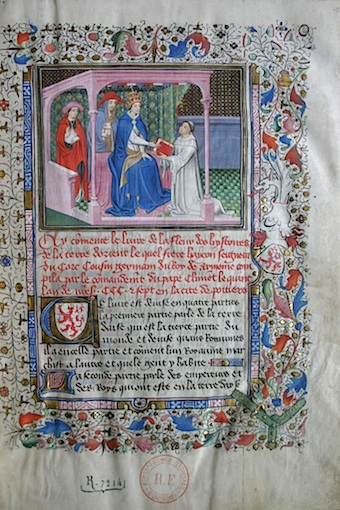 Cy comẽce le liure de la fleur des hystoires
de la terre dorient le quel frere haycon seigneur
du Corc cousin germain du roy de armenie con
pila par le comandemẽt du pape climẽt le quint
lan de CCC. et sept en la cite de poitiers
Ce liure est deuise en quatre parties
la premiere partie parle de la terre
dasie qui est la tierce partie du
monde et deuise quans royaumes
il a en celle partie et cõment lun royaume mar
chist a lautre et quele gent y habite
La seconde partie parle des empereurs et
des roys qui ont este en la terre dasie
R.F.